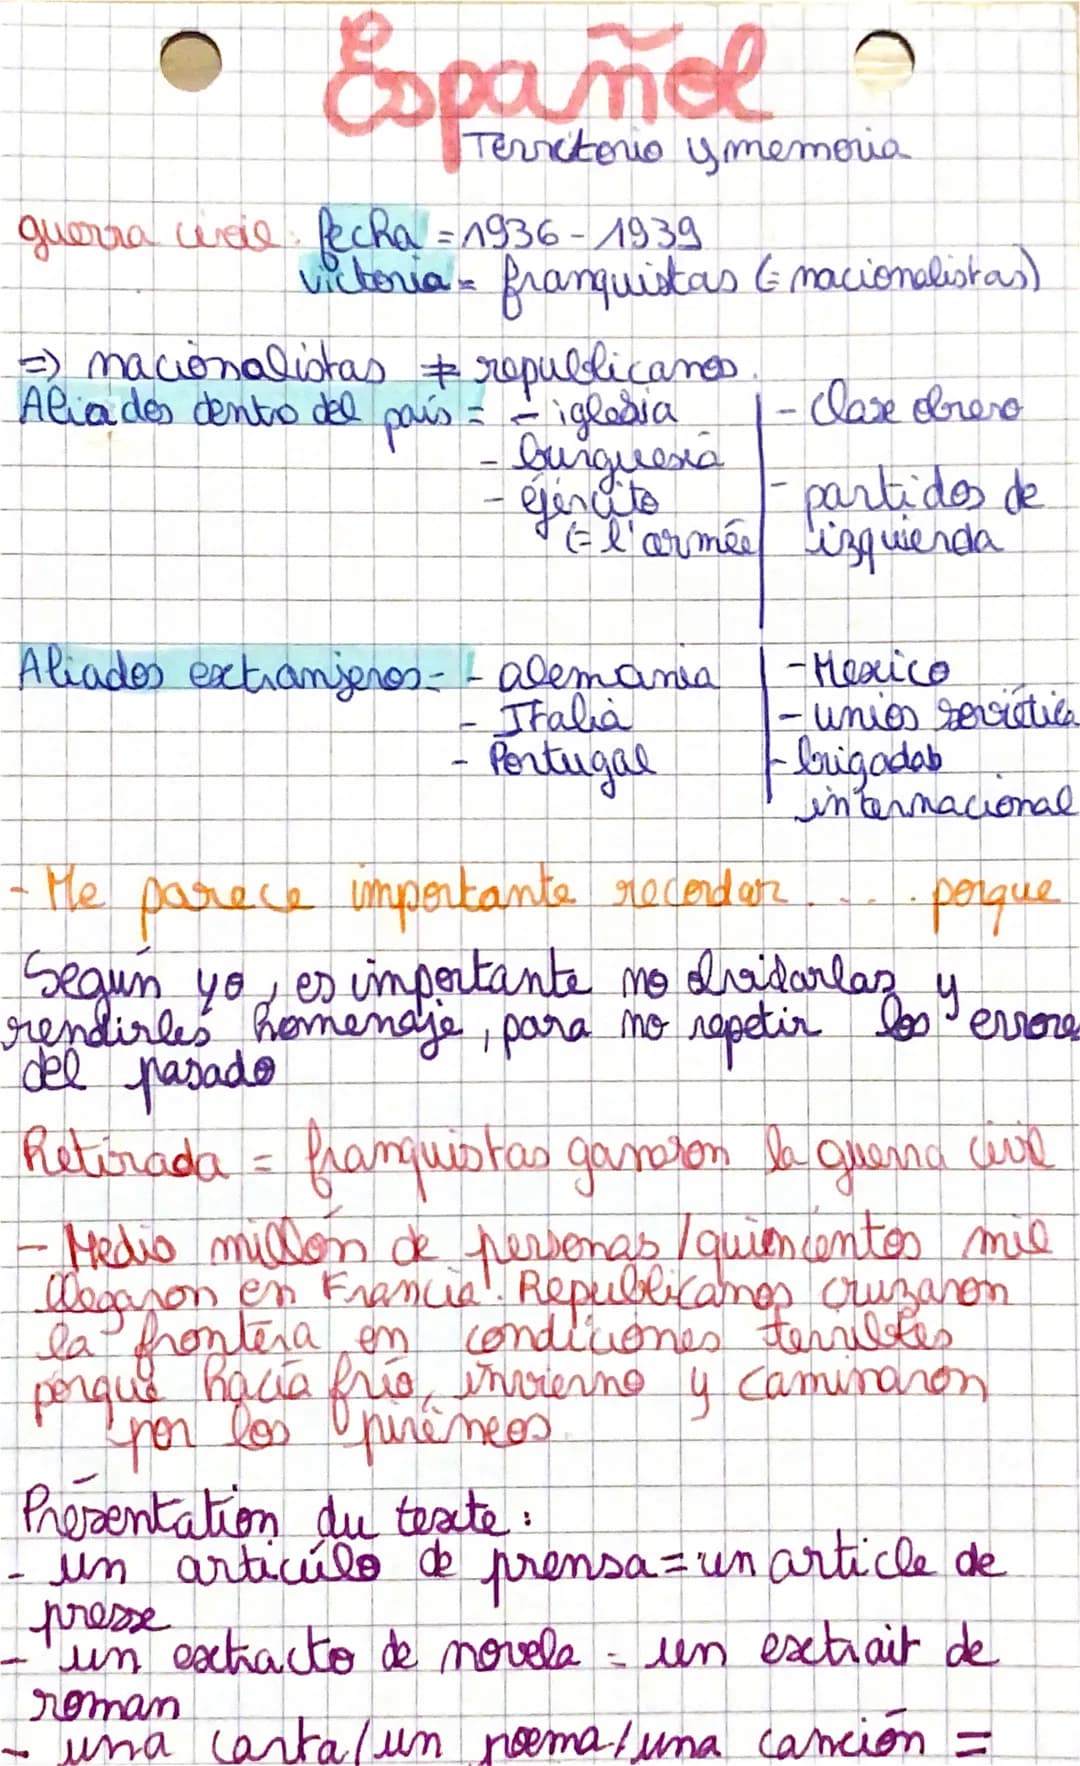 Español
Territorio y memoria
guerra civil : fecha = 1936 - 1939
victoria = franquistas (= nacionalistas)
=> nacionalistas ≠ republicanos.
Aliados dentro del país = - iglesia | - Clase obrero
- burguesía
- éjército | - partidos de
(= l'armée | izquierda
Aliados extranjeros = - alemania | - Mexico
- Italia | - unios soviética
- Portugal | - brigadas
internacional
- Me parece importante recordar .... porque
Según yo, es importante no olvidarlas y
rendirles homenaje, para no repetir los errores
del pasado
Retirada = franquistas ganaron la guerra civil
- Medio millón de personas / quiencientos mil
llegaron en Francia. Republicanos cruzaron
la frontera en condiciones terribles
porque hacía frío, invierno y caminaron
por los pirèneos.
Présentation du texte :
- un artículo de prensa = un article de
presse
- un extracto de novela = un extrait de
roman
- una carta / un poema / una canción =